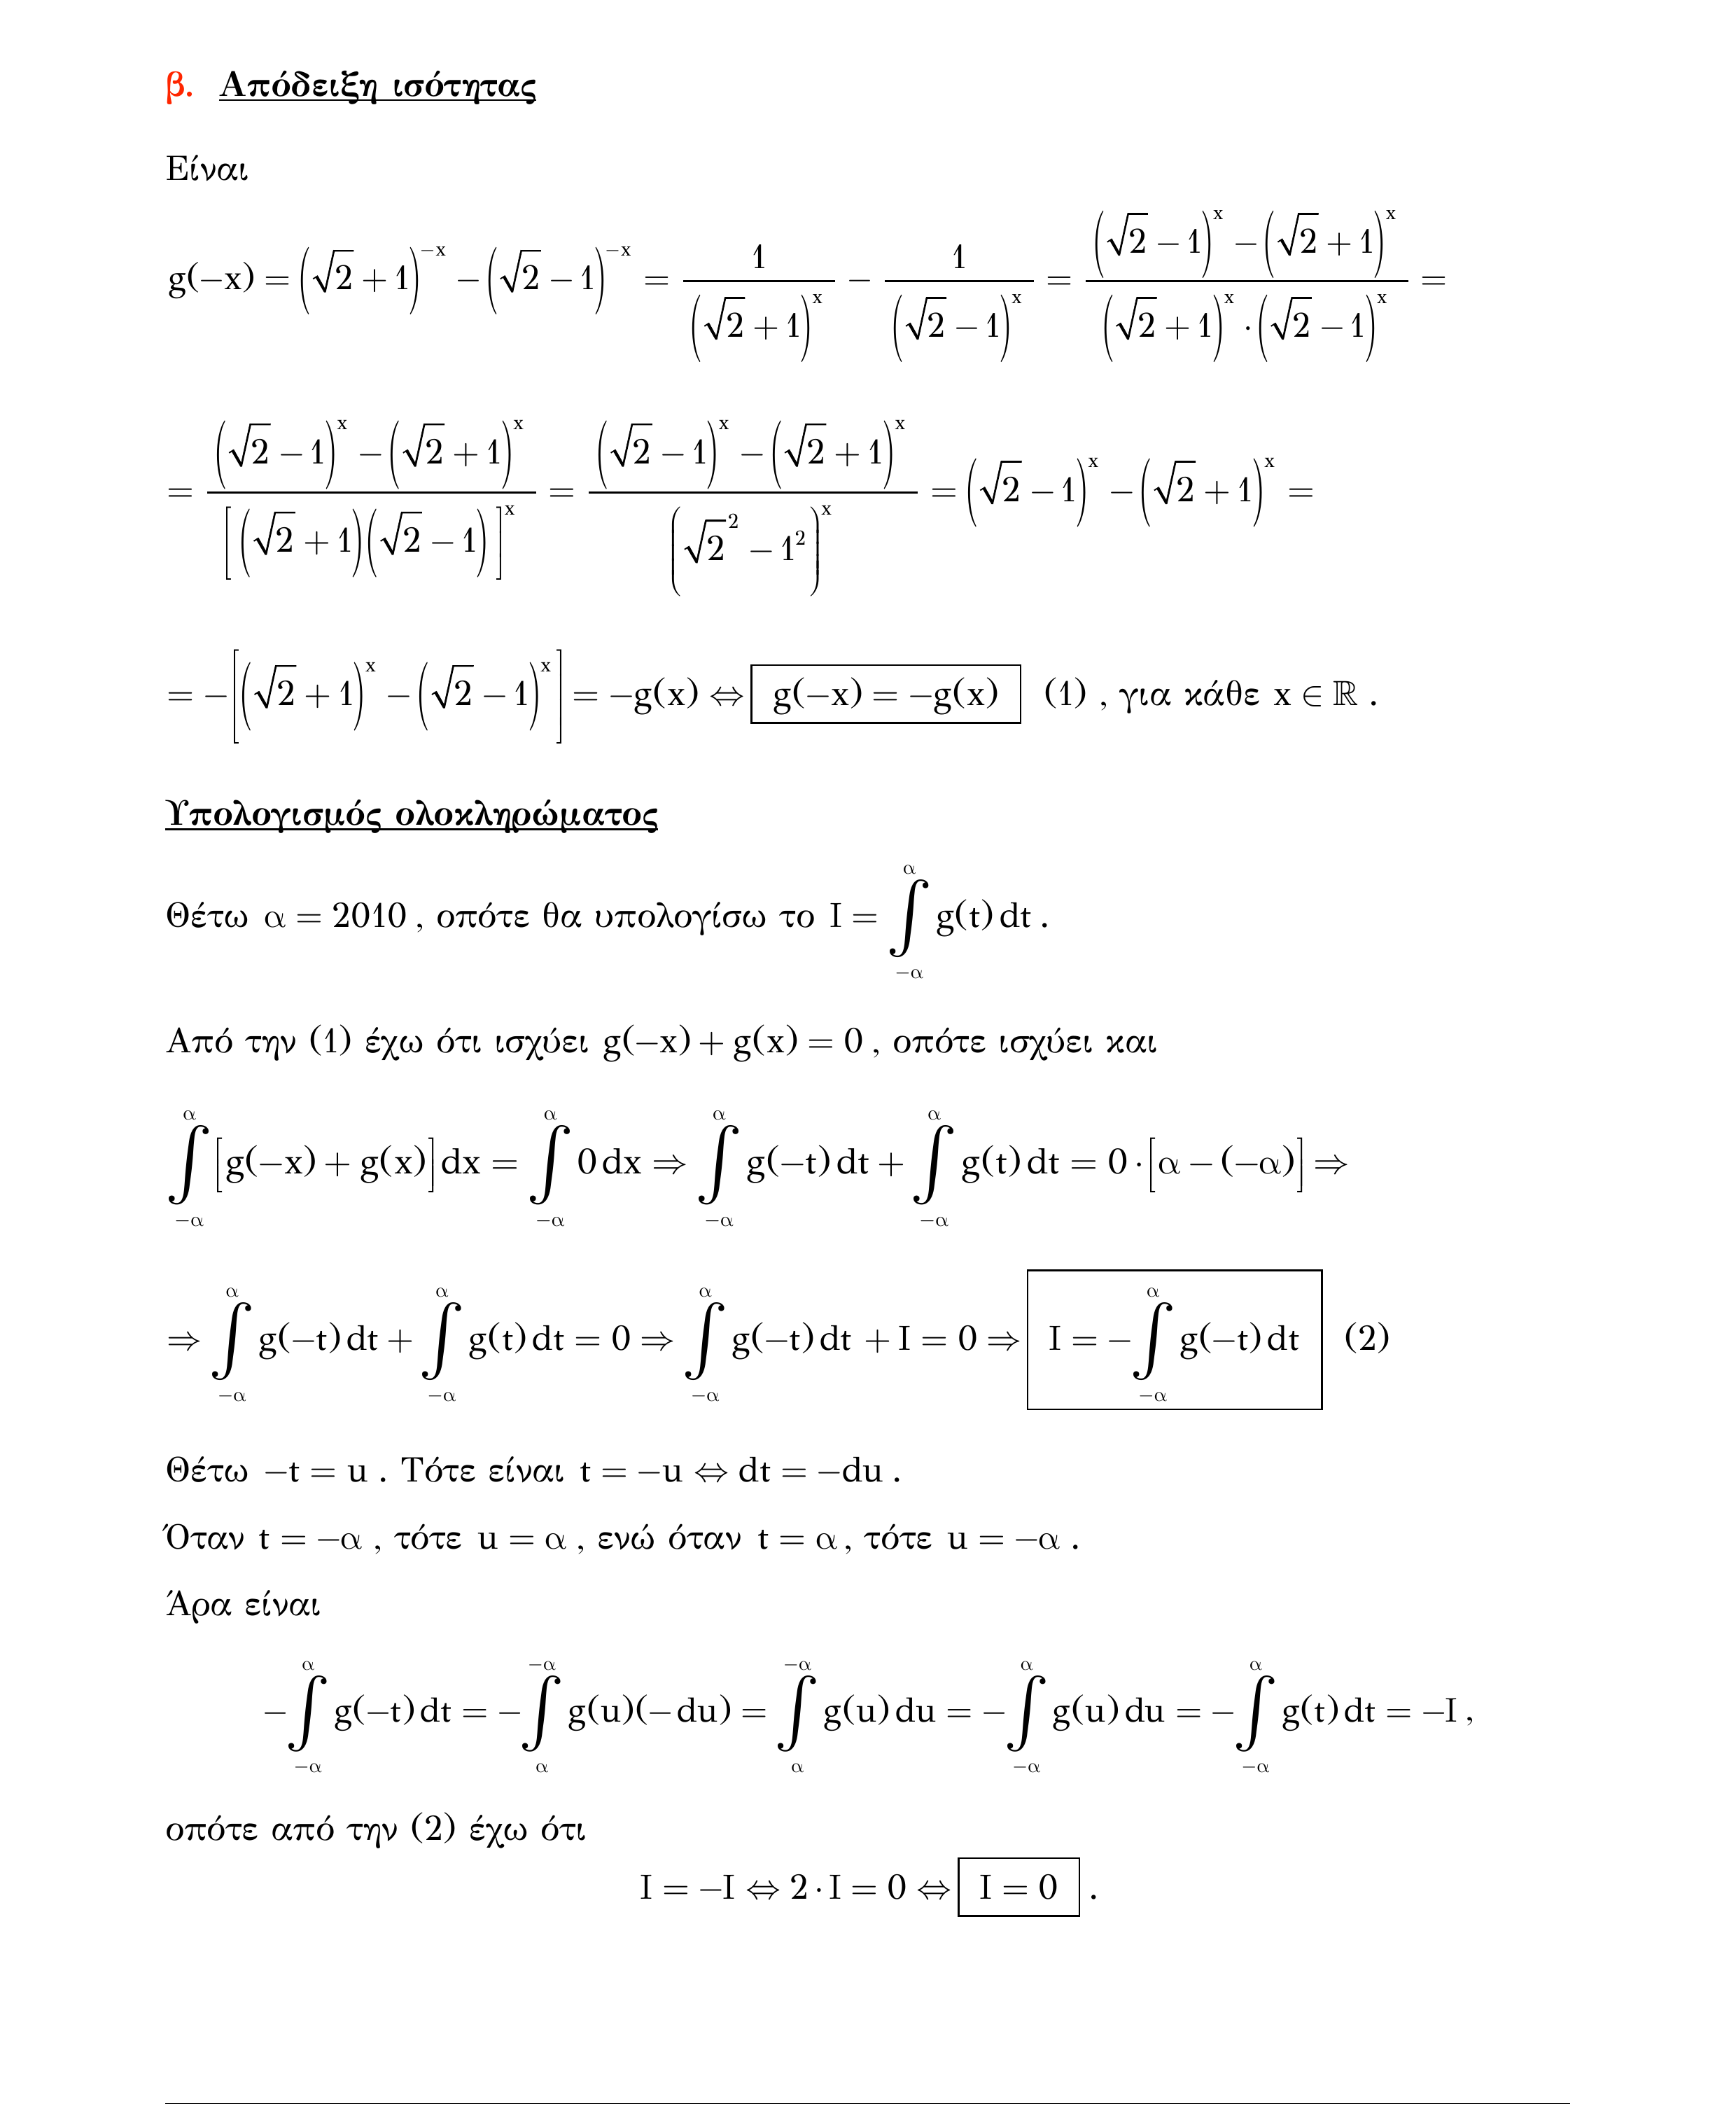 β. Απόδειξη ισότητας
Είναι
g(−x) = (√2 + 1)^{−x} − (√2 − 1)^{−x} = \frac{1}{(√2 + 1)^x} − \frac{1}{(√2 − 1)^x} = \frac{(√2 − 1)^x − (√2 + 1)^x}{(√2 + 1)^x · (√2 − 1)^x} =
= \frac{(√2 − 1)^x − (√2 + 1)^x}{[(√2 + 1)(√2 − 1)]^x} = \frac{(√2 − 1)^x − (√2 + 1)^x}{(√2^2 − 1^2)^x} = (√2 − 1)^x − (√2 + 1)^x =
= −[(√2 + 1)^x − (√2 − 1)^x] = −g(x) ⇔ g(−x) = −g(x) (1) , για κάθε x ∈ ℝ .
Υπολογισμός ολοκληρώματος
Θέτω α = 2010 , οπότε θα υπολογίσω το I = ∫_{−α}^{α} g(t) dt .
Από την (1) έχω ότι ισχύει g(−x) + g(x) = 0 , οπότε ισχύει και
∫_{−α}^{α} [g(−x) + g(x)] dx = ∫_{−α}^{α} 0 dx ⇒ ∫_{−α}^{α} g(−t) dt + ∫_{−α}^{α} g(t) dt = 0 · [α − (−α)] ⇒
⇒ ∫_{−α}^{α} g(−t) dt + ∫_{−α}^{α} g(t) dt = 0 ⇒ ∫_{−α}^{α} g(−t) dt + I = 0 ⇒ I = −∫_{−α}^{α} g(−t) dt (2)
Θέτω −t = u . Τότε είναι t = −u ⇔ dt = −du .
Όταν t = −α , τότε u = α , ενώ όταν t = α , τότε u = −α .
Άρα είναι
−∫_{−α}^{α} g(−t) dt = −∫_{α}^{−α} g(u)(− du) = ∫_{α}^{−α} g(u) du = −∫_{−α}^{α} g(u) du = −∫_{−α}^{α} g(t) dt = −I ,
οπότε από την (2) έχω ότι
I = −I ⇔ 2 · I = 0 ⇔ I = 0 .